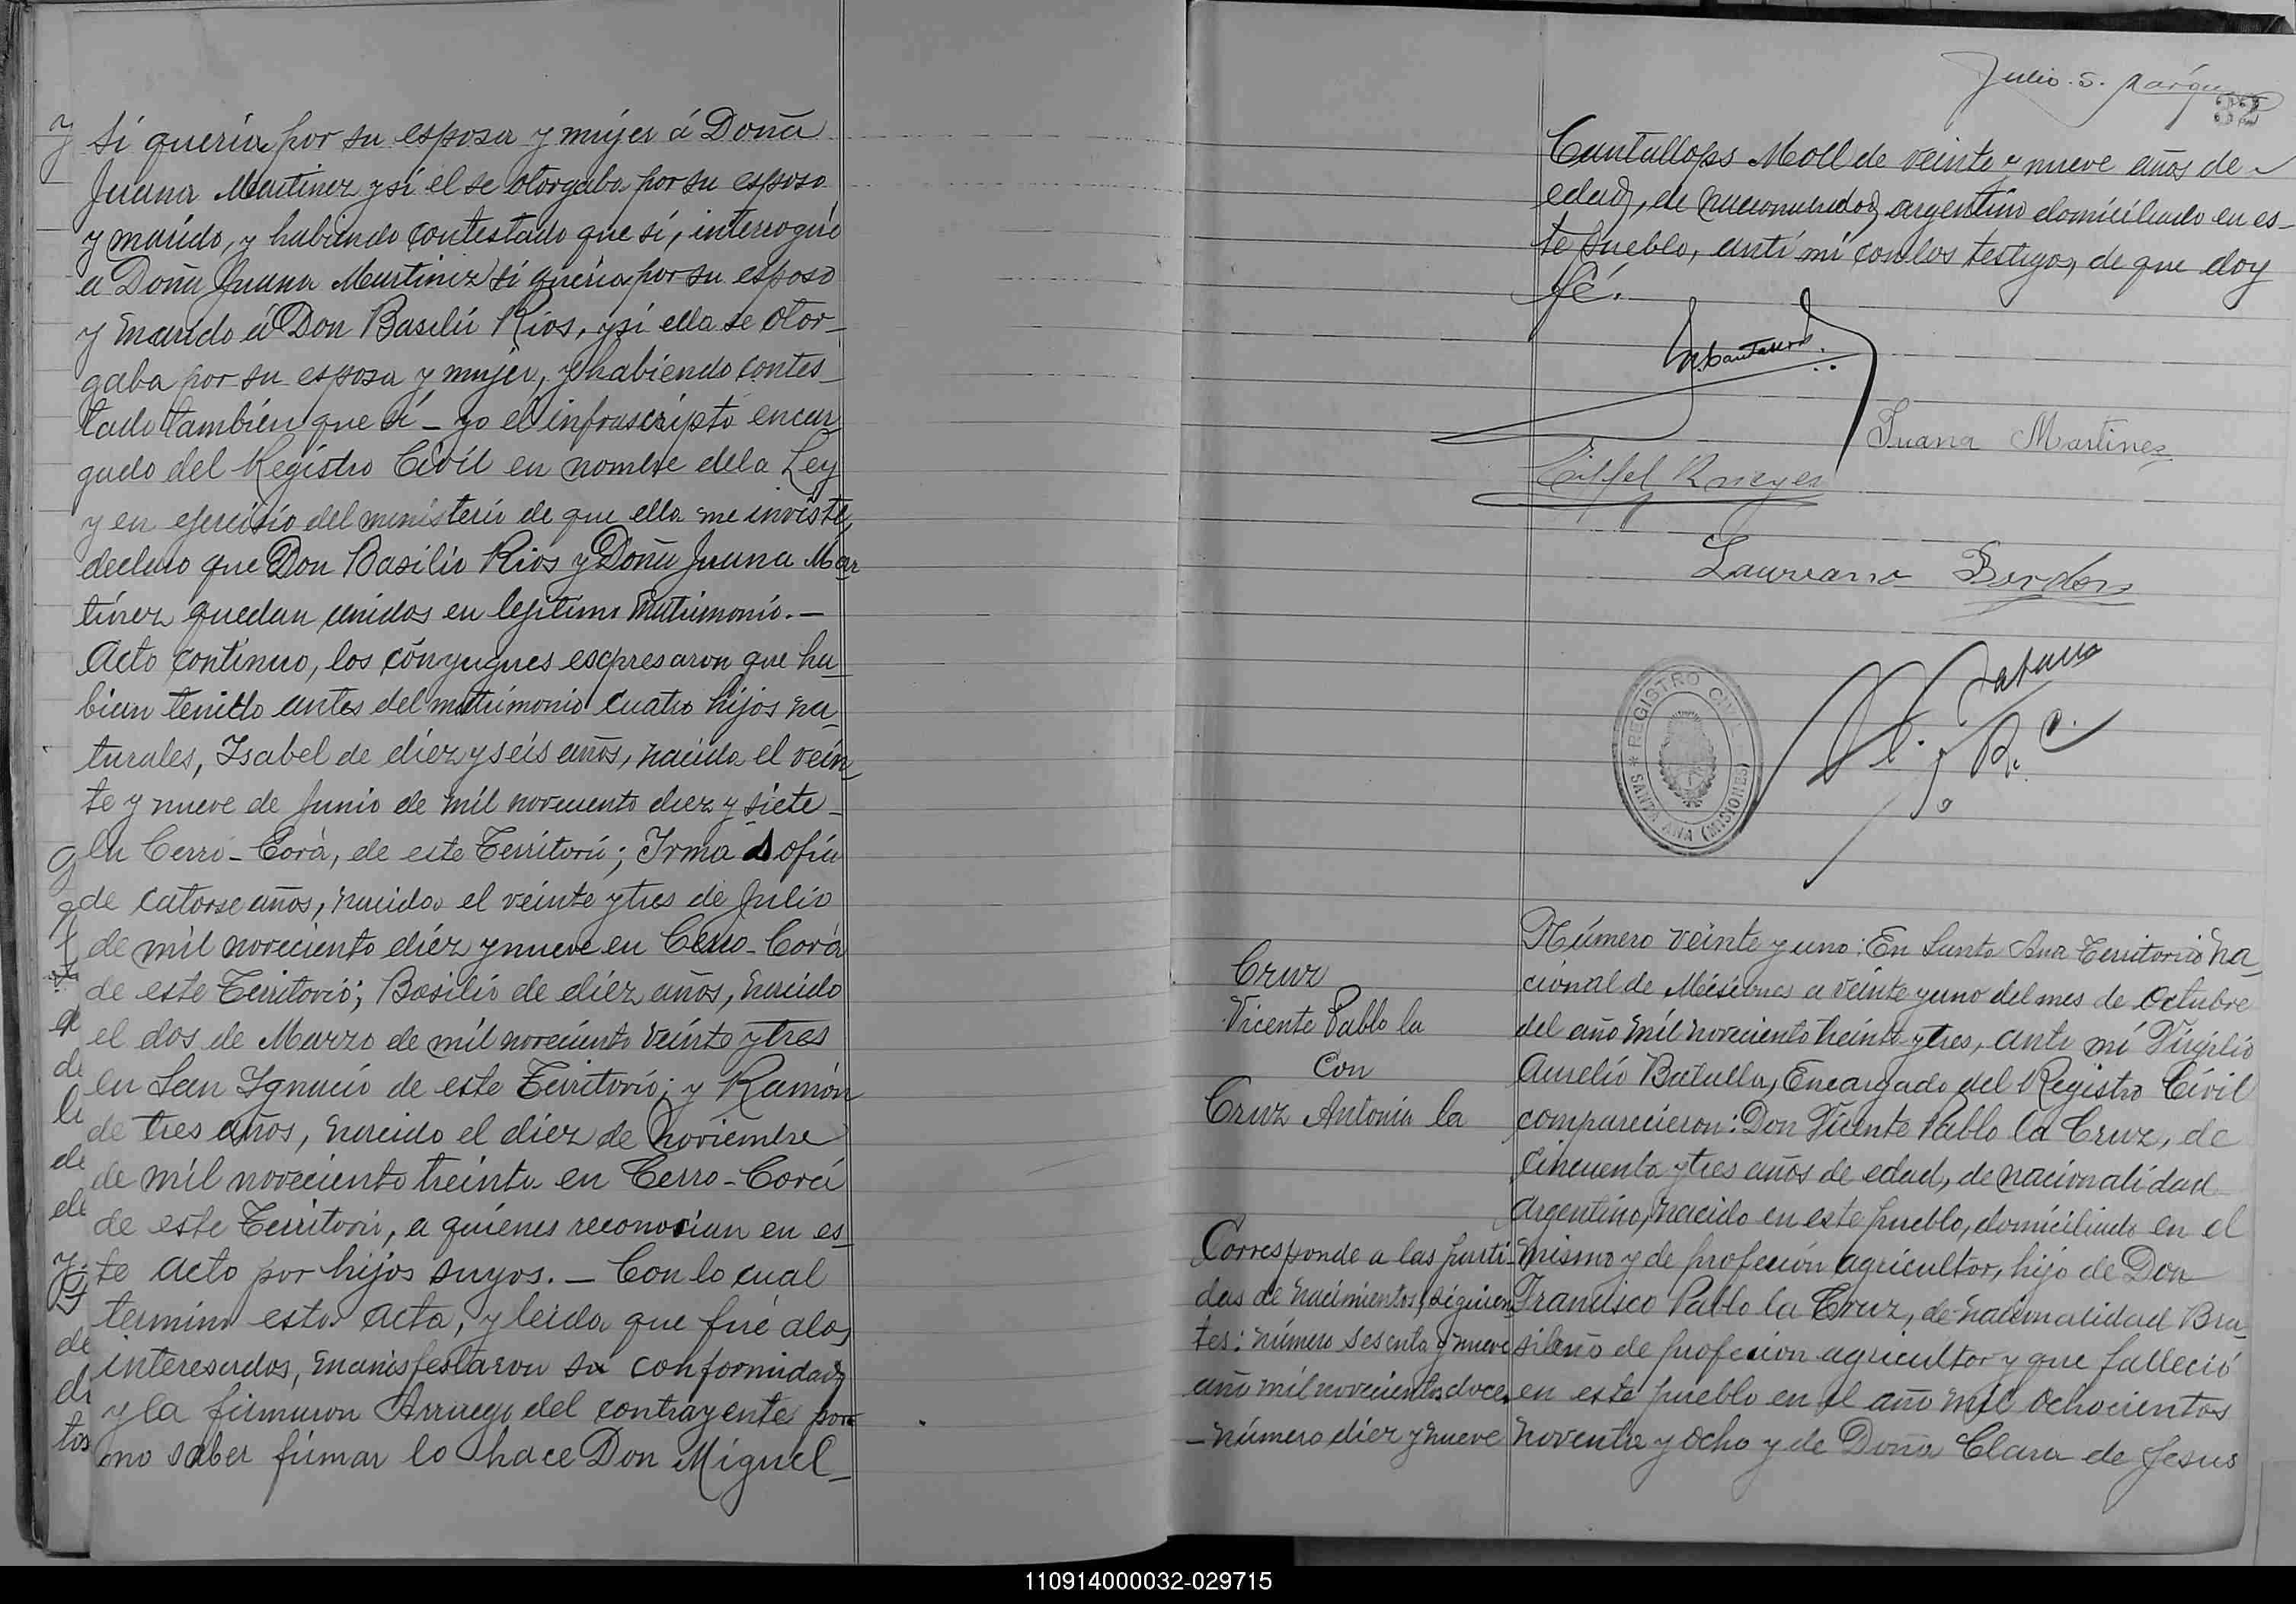 si queria por su esposa y mujer á Doña
Juana Martinez y si el se otorgaba por su esposo
y marido, y habiendo contestado que sí, interrogué
a Doña Juana Martinez si queria por su esposo
y marido á Don Basilio Rios, y si ella se otor-
gaba por su esposa y mujer, y habiendo contes-
tado también que sí - yo el infrascripto encar
gado del Registro Civil en nombre de la Ley
y en ejercisio del ministerio de que ella me inviste,
declaro que Don Basilio Rios y Doña Juana Mar
tinez quedan unidos en legitimo matrimonio.-
Acto continuo, los cónyugues escpresaron que ha-
bian tenido antes del matrimonio cuatro hijos na-
turales, Isabel de diez y seis años, nacida el vein-
te y nueve de Junio de mil noveciento diez y siete-
en Cerro-Corá, de este Territorio; Irma Sofia
de catorse años, nacida el veinte y tres de Julio
de mil noveciento diez y nueve en Cerro-Corá
de este Territorio; Basilio de diez años, nacido
el dos de Marzo de mil noveciento veinte y tres
en San Ignacio de este Territorio; y Ramón
de tres años, nacido el diez de Noviembre
de mil noveciento treinta en Cerro-Corá
de este Territorio, a quienes reconosian en es-
te acto por hijos suyos.- Con lo cual
termino esta acta, y leida que fué a los
interesados, manisfestaron su conformidad
y la firmaron Arruego del contrayente por
no saber firmar lo hace Don Miguel-
Julio S.
Cantallops Moll de veinte y nueve años de
edad, de nacionalidad argentino domiciliado en es-
te pueblo, anti mi con los testigos, de que doy
fé.
M. Cantallops
Juana Martinez
Laureano
REGISTRO CIVIL
* SANTA ANA (MISIONES)
Cruz
Vicente Pablo la
Con
Cruz Antonia la
Corresponde a las parti-
das de nacimientos, siguien
tes: número sesenta y nueve
año mil novecientos doce.
- número diez y nueve
Número veinte y uno: En Santa Ana Territorio Na-
cional de Misiones a veinte y uno del mes de Octubre
del año mil noveciento treinta y tres, ante mí Virgilio
Aurelio Batulla, Encargado del Registro Civil
comparecieron: Don Vicente Pablo la Cruz, de
cincuenta y tres años de edad, de nacionalidad
argentino, nacido en este pueblo, domiciliado en el
mismo y de profeción agricultor, hijo de Don
Francisco Pablo la Cruz, de nacionalidad Bra-
sileño de profecion agricultor y que falleció
en este pueblo en el año mil ochocientos
noventa y ocho y de Doña Clara de Jesus
110914000032-029715